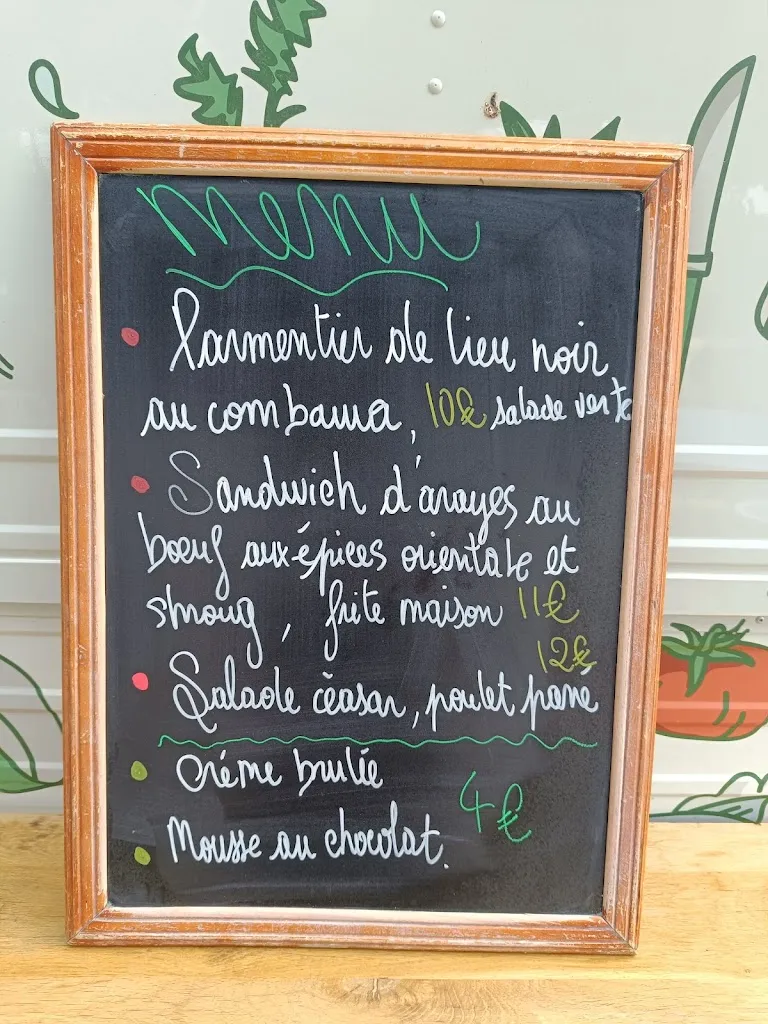 menu
Parmentier de lieu noir
au combawa, 10€ salade verte
Sandwich d'arayes au
boeuf aux épices orientale et
shroug, frite maison 11€
12€
Salade céasar, poulet pané
Créme brulée
4€
Mousse au chocolat.